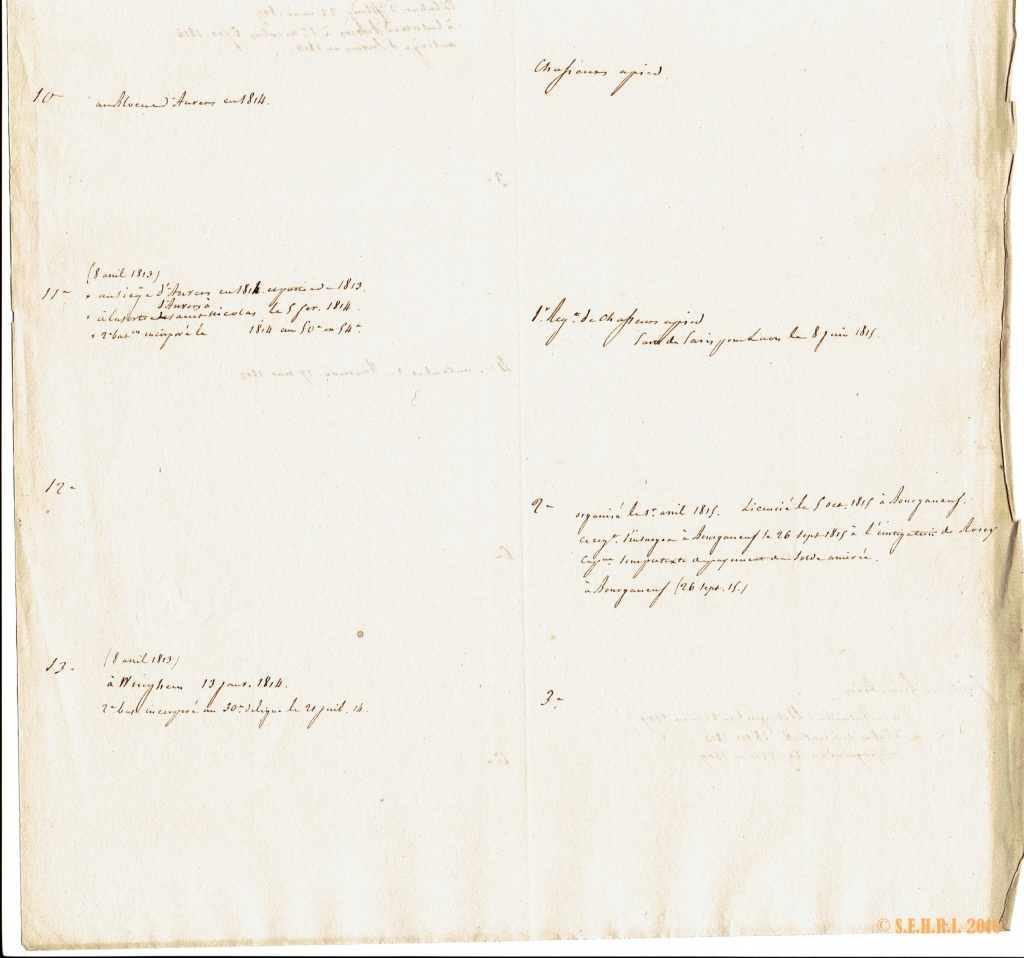 10e
au Blocus d'Anvers en 1814.
11e
(8 avril 1813)
au siège d'Anvers en 1814 1813.
d'Anvers à
à la sortie de saint Nicolas le 5 fev. 1814.
2e baton incorporé le 1814 au 50e en 54e
12e
13e
(8 avril 1813)
à Wineghem 13 janv. 1814.
2e bat. incorporé au 30e de ligne le 21 juil. 14.
Chasseurs a pied
1er Regt. de Chasseurs a pied
Parti de Paris pour Laon le 8 juin 1815.
2e
organisé le 1er avril 1815. Licencié le 5 oct. 1815 à Bourganeuf.
ce regt. s'insurgea à Bourganeuf le 26 sept. 1815 à l'instigation de
sous prétexte de payement de solde arriérée.
à Bourganeuf (26 sept. 15.)
3e
© S.E.H.R.I. 2016